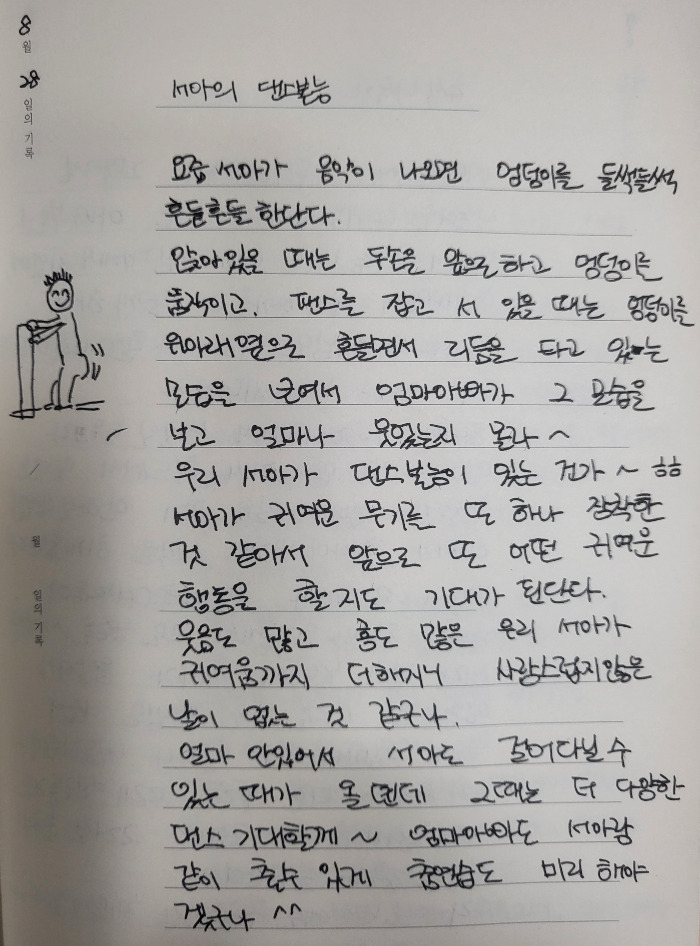 8
월
28
일의 기록
서아의 댄스본능
요즘 서아가 음악이 나오면 엉덩이를 들썩들썩
흔들흔들 한단다.
앉아있을 때는 두손을 앞으로하고 엉덩이를
움직이고, 팬스를 잡고 서 있을 때는 엉덩이를
위아래옆으로 흔들면서 리듬을 타고 있는
모습을 보여서 엄마아빠가 그 모습을
보고 얼마나 웃었는지 몰라 ^
우리 서아가 댄스본능이 있는 건가 ~ ㅎㅎ
서아가 귀여운 무기를 또 하나 장착한
것 같아서 앞으로 또 어떤 귀여운
행동을 할지도 기대가 된단다.
웃음도 많고 흥도 많은 우리 서아가
귀여움까지 더해지니 사랑스럽지않은
날이 없는 것 같구나.
얼마 안있어서 서아도 걸어다닐 수
있는 때가 올텐데 그때는 더 다양한
댄스 기대할께 ~ 엄마아빠도 서아랑
같이 출수 있게 춤연습도 미리 해야
겠구나 ^^
월
일의 기록